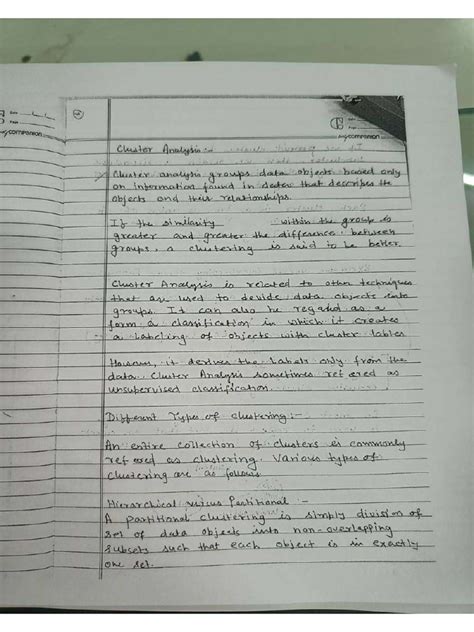 companion
companion
Cluster Analysis :-
Cluster analysis groups data objects based only
on information found in data that describes the
objects and their relationships.
If the similarity within the group is
greater and greater the difference between
groups, a clustering is said to be better.
Cluster Analysis is related to other techniques
that are used to devide data objects into
groups. It can also be regated as a
form a classification in which it creates
a labeling of objects with cluster lables
However, it derives the labels only from the
data. Cluster Analysis sometimes refered as
unsupervised classification.
Different Types of clustering :-
An entire collection of clusters is commonly
refered as clustering. Various types of
clustering are as follows
Hierarchical versus Partitional :-
A partitional clustering is simply division of
set of data objects into non-overlapping
subsets such that each object is in exactly
one set.